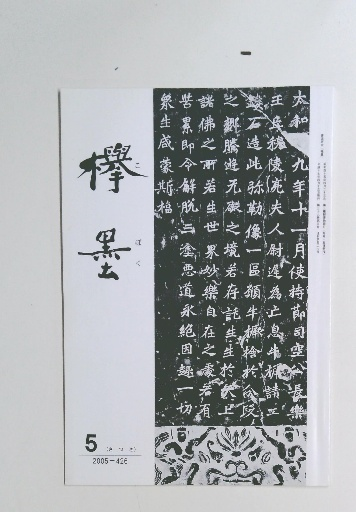 欅墨
ぼく
太和 九年十一月使持節司空公長樂
王丘穆陵亮夫人尉遲為亡息牛橛請工
鏤石造此弥勒像一區願牛橛捨於分段
之鄉騰遊无礙之境若存託生生於天上
諸佛之所若生世界妙樂自在之處若有
苦累即令解脫三塗惡道永絕因趣一切
衆生咸蒙斯福
5
2005-426